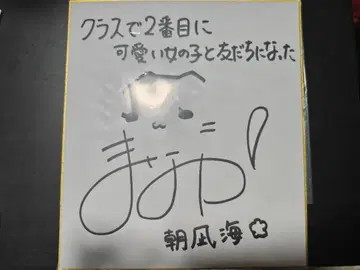 クラスで2番目に
可愛い女の子と友だちになった
朝凪海